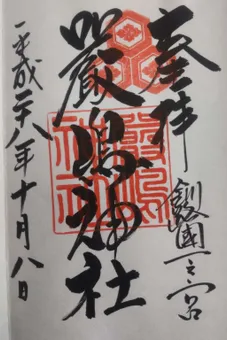 奉拝
釧國一之宮
嚴島神社
平成二十八年十月八日
嚴島神社